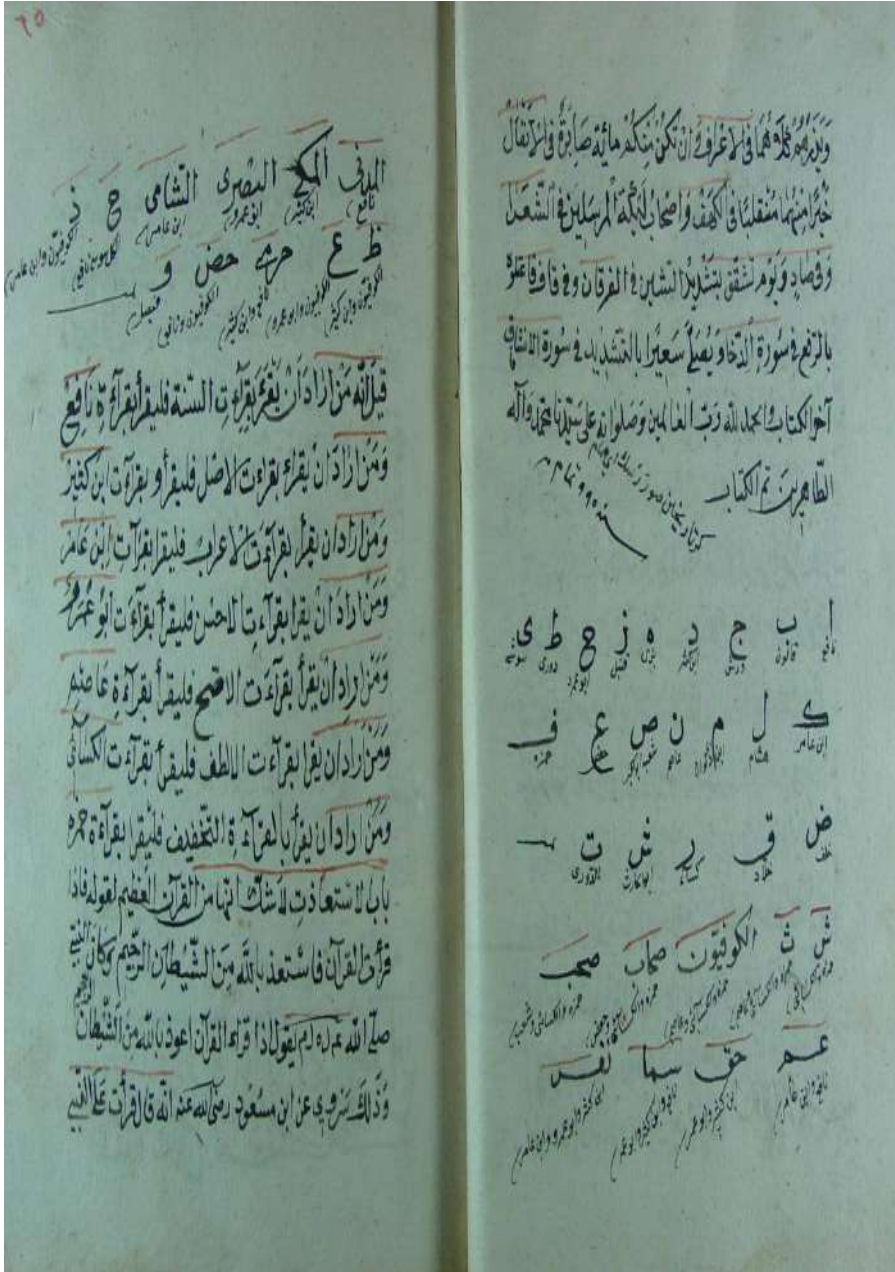 ويذرهم كلاهما في الاعراف ان تكن منكم مائة صابرة في الانفال
خيرا منهما منقلبا في الكهف واصحاب لئيكة المرسلين في الشعرا
وفي صاد ويوم تشقق بتشديد الشين في الفرقان وفي قاف
بالرفع في سورة الدخان ويصلى سعيرا بالتشديد في سورة الانشقاق
آخر الكتاب والحمد لله رب العالمين وصلوات على سيدنا محمد وآله
الطاهرين تم الكتاب
ا ب ج د ه ز ح ط ى
نافع قالون ورش ابن كثير بزى قنبل ابو عمرو دورى سوسى
ك ل م ن ص ع ف
ابن عامر هشام ابن ذكوان عاصم شعبه ابو بكر حفص حمزه
ض ق ر ش ت
خلف خلاد كسائى ابو الحارث الدورى
ش ث الكوفيون صحاب صحب
حمزه والكسائى حمزه والكسائى وعاصم حمزه والكسائى وحفص حمزه والكسائى وشعبه
عم حق سما نفر
نافع وابن عامر ابن كثير وابو عمرو نافع وابن كثير وابو عمرو ابن كثير وابو عمرو وابن عامر
٦٥
المدنى المكى البصرى الشامى خ ذ
نافع ابن كثير ابو عمرو ابن عامر الكل سوى نافع الكوفيون وابن عامر
ظ غ حرمى حصن و
الكوفيون وابن كثير الكوفيون وابو عمرو نافع وابن كثير الكوفيون ونافع فيصل
قيل انه من اراد ان يقرء بقراءت السنة فليقرأ بقراءة نافع
ومن اراد ان يقراء بقراءت الاصل فليقرأ بقرآت ابن كثير
ومن اراد ان يقرأ بقرآءت الاعراب فليقرا بقرآت ابن عامر
ومن اراد ان يقرا بقرآءت الاحسن فليقرأ بقرآءت ابو عمرو
ومن اراد ان يقرأ بقرآءت الافصح فليقرأ بقرآءة عاصم
ومن اراد ان يقرا بقرآءت الالطف فليقرأ بقرآءت الكسآئى
ومن اراد ان يقرأ بالقرآءة التخفيف فليقرا بقراءة حمزه
باب الاستعاذت لا شك انها من القرآن العظيم لقوله فاذا
قرأت القرآن فاستعذ بالله من الشيطان الرجيم وكان النبي
صلى الله عليه وسلم يقول اذا قراء القرآن اعوذ بالله من الشيطان الرجيم
وذلك يروى عن ابن مسعود رضى الله عنه انه قال قرأت على النبي